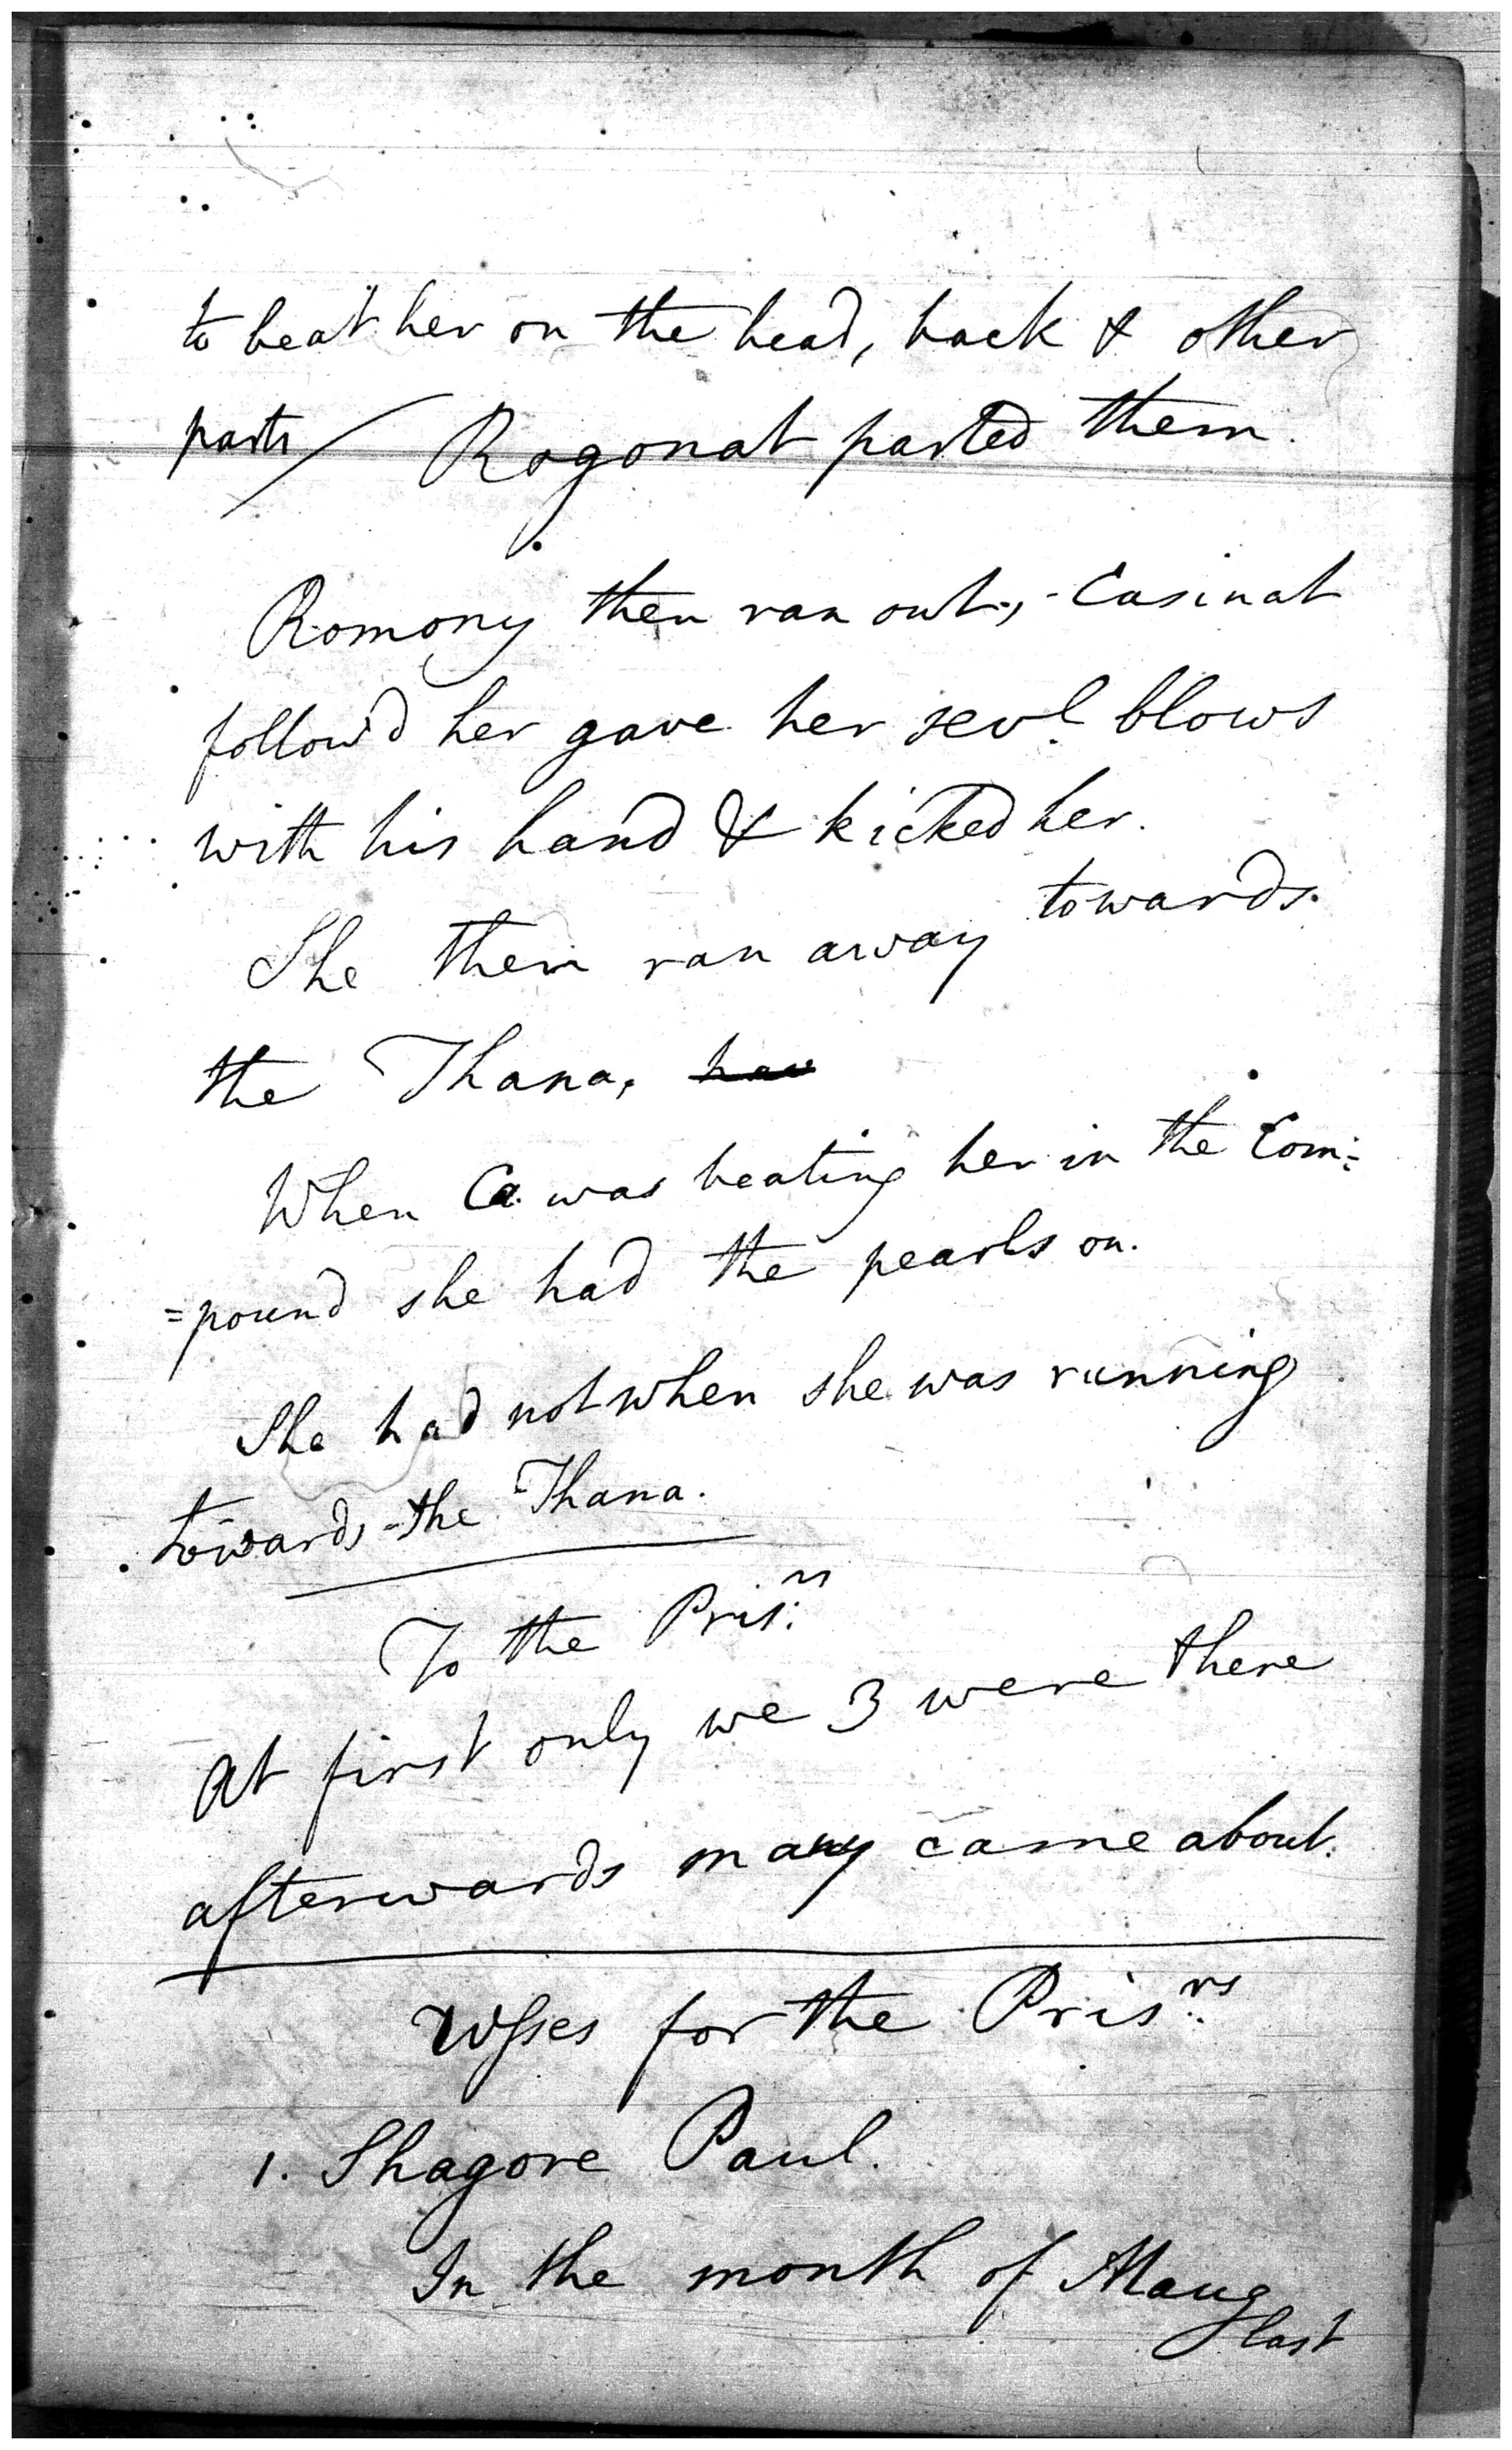 to beat her on the head, back & other
parts / Rogonat parted them.
Romony then ran out, - Casinat
follow'd her gave her sevl. blows
with his hand & kicked her.
She then ran away towards
the Thana, hav
When Ca. was beating her in the Com:
=pound she had the pearls on.
She had not when she was running
towards the Thana.
To the Pris:rs
At first only we 3 were there
afterwards many came about.
Wsses for the Pris:rs
1. Shagore Paul.
In the month of Maug
last